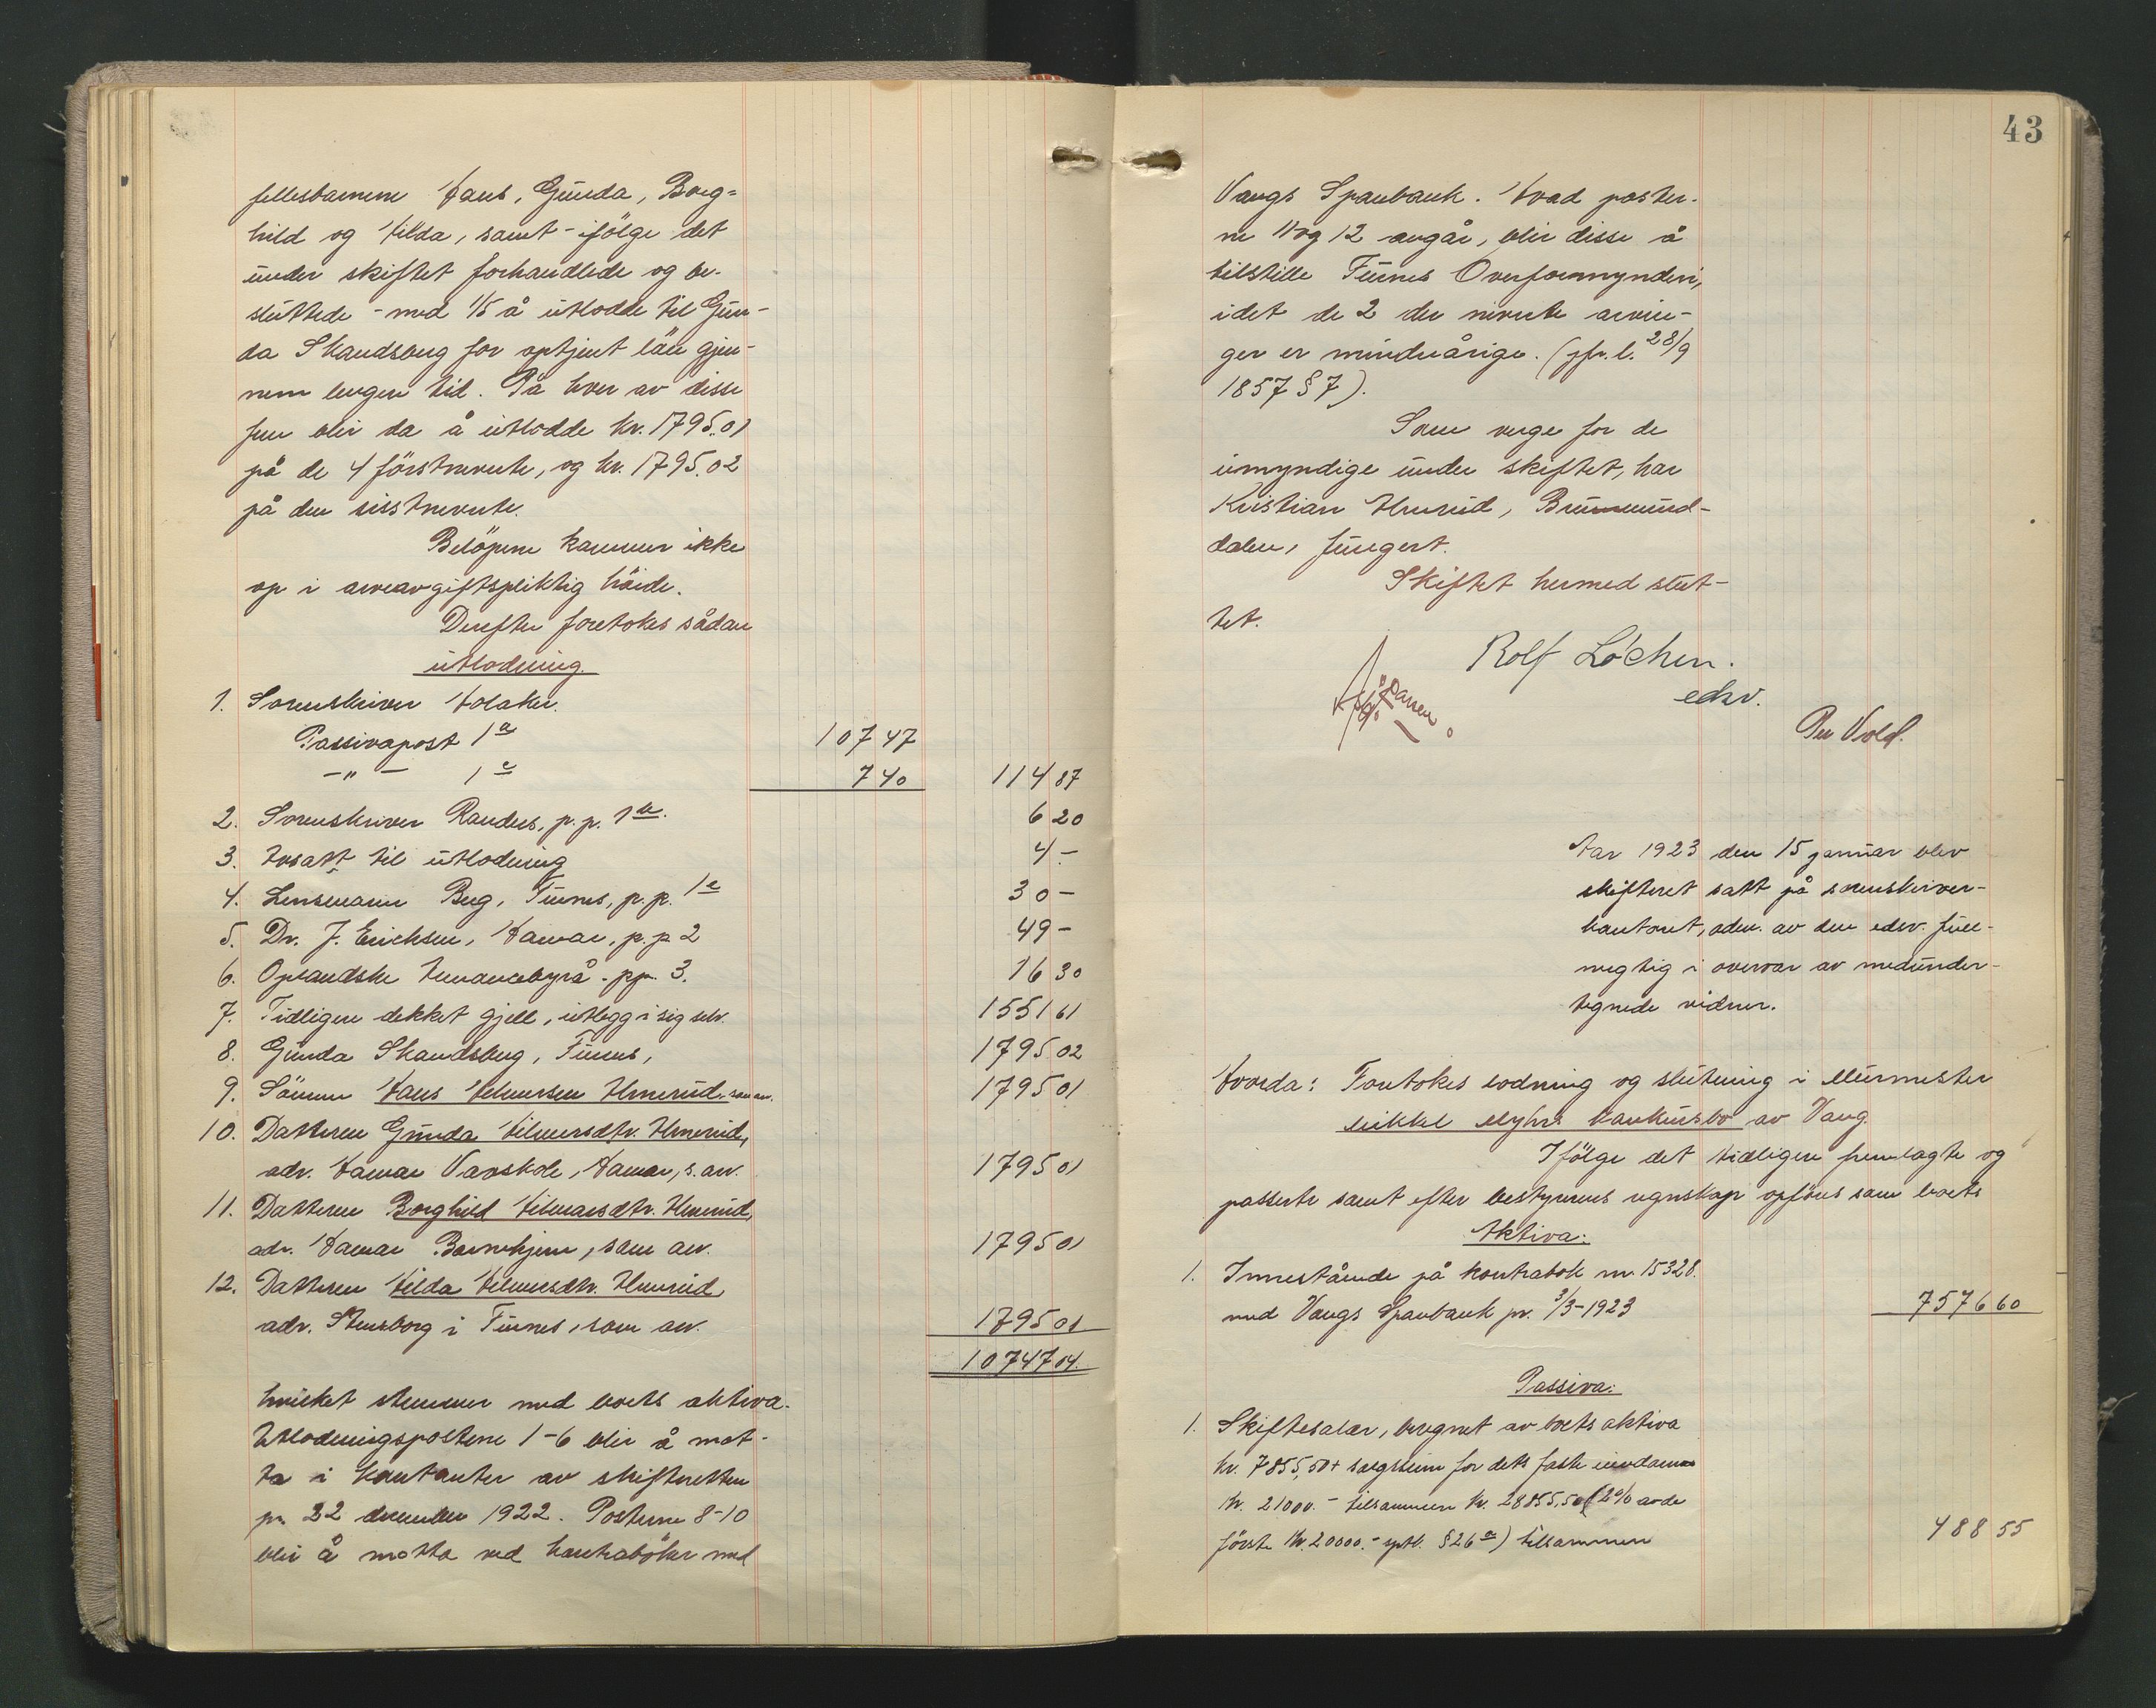 fellesbarnene Hans, Gunda, Borg=
hild og Hilda, samt - ifölge det
under skiftet forhandlede og be-
sluttede - med 1/5 å utlodde til Gun-
da Skandsberg for optjent lön gjen-
nem lengere tid. På hver av disse
fem blir da å utlodde kr. 1795.01
på de 4 förstnevnte, og kr. 1795.02
på den sistnevnte.
Belöpene kommer ikke
op i arveavgiftspliktig höide.
Derefter foretokes sådan
utlodning.
1. Sorenskriver Holaker.
Passivapost 1a 107 47
-"- 1c 7 40 114 87
2. Sorenskriver Randers, p.p. 1b. 6 20
3. Avsatt til utlodning 4 -
4. Lensmann Berg, Furnes, p.p. 1e 30 -
5. Dr. J. Erichsen, Hamar, p.p 2 49 -
6. Oplandske Annoncebyrå - pp. 3. 16 30
7. Tidligere dekket gjell, utlegg i sig selv. 1551 61
8. Gunda Skandsberg, Furnes, 1795 02
9. Sönnen Hans Hilmarsen Hmerud, som arv. 1795 01
10. Datteren Gunda Hilmarsdtr. Hmerud,
adr. Hamar Vaskole, Hamar, s. arv. 1795 01
11. Datteren Borghild Hilmarsdtr. Hmerud,
adr. Hamar Barnehjem, som arv. 1795 01
12. Datteren Hilda Hilmarsdtr. Hmerud,
adr. Stensborg i Furnes, som arv. 1795 01
10747 04.
hvilket stemmer med boets aktiva.
Utlodningspostene 1-6 blir å mot-
ta i kontanter av skifteretten
pr. 22 desember 1922. Postene 8-10
blir å motta ved kontrabøker med
43
Vangs Sparebank. Hvad poster-
ne 11 og 12 angår, blir disse å
tilstille Furnes Overformynderi,
idet de 2 der nevnte arvin-
ger er mindreårige. (jfr. l. 28/9
1857 § 7).
Som verge for de
umyndige under skiftet, har
Kristian Hmerud, Brummund-
dalen, fungert.
Skiftet hermed slut-
tet.
Rolf Löchen.
edsv.
Per Vold.
Aar 1923 den 15 januar blev
skifteret satt på sorenskriver-
kontoret, adm. av den edsv. full-
megtig i overvær av medunder-
tegnede vidner.
Hvorda: Foretokes lodning og slutning i Murmester
Mikkel Myhrs konkursbo av Vang.
Ifölge det tidligere fremlagte og
passerte samt efter bestyrerens regnskap opföres som boets
Aktiva:
1. Innestående på kontrabok nr. 15328.
med Vangs Sparebank pr. 3/3-1923 7576 60
Passiva:
1. Skiftesalær, beregnet av boets aktiva
kr. 7855,50 + salgssum for dets faste eiendom
kr. 21000.- tilsammen kr. 28855,50 (2% av de
förste kr. 20000.- sptl. § 26 a) tilsammen 488 55